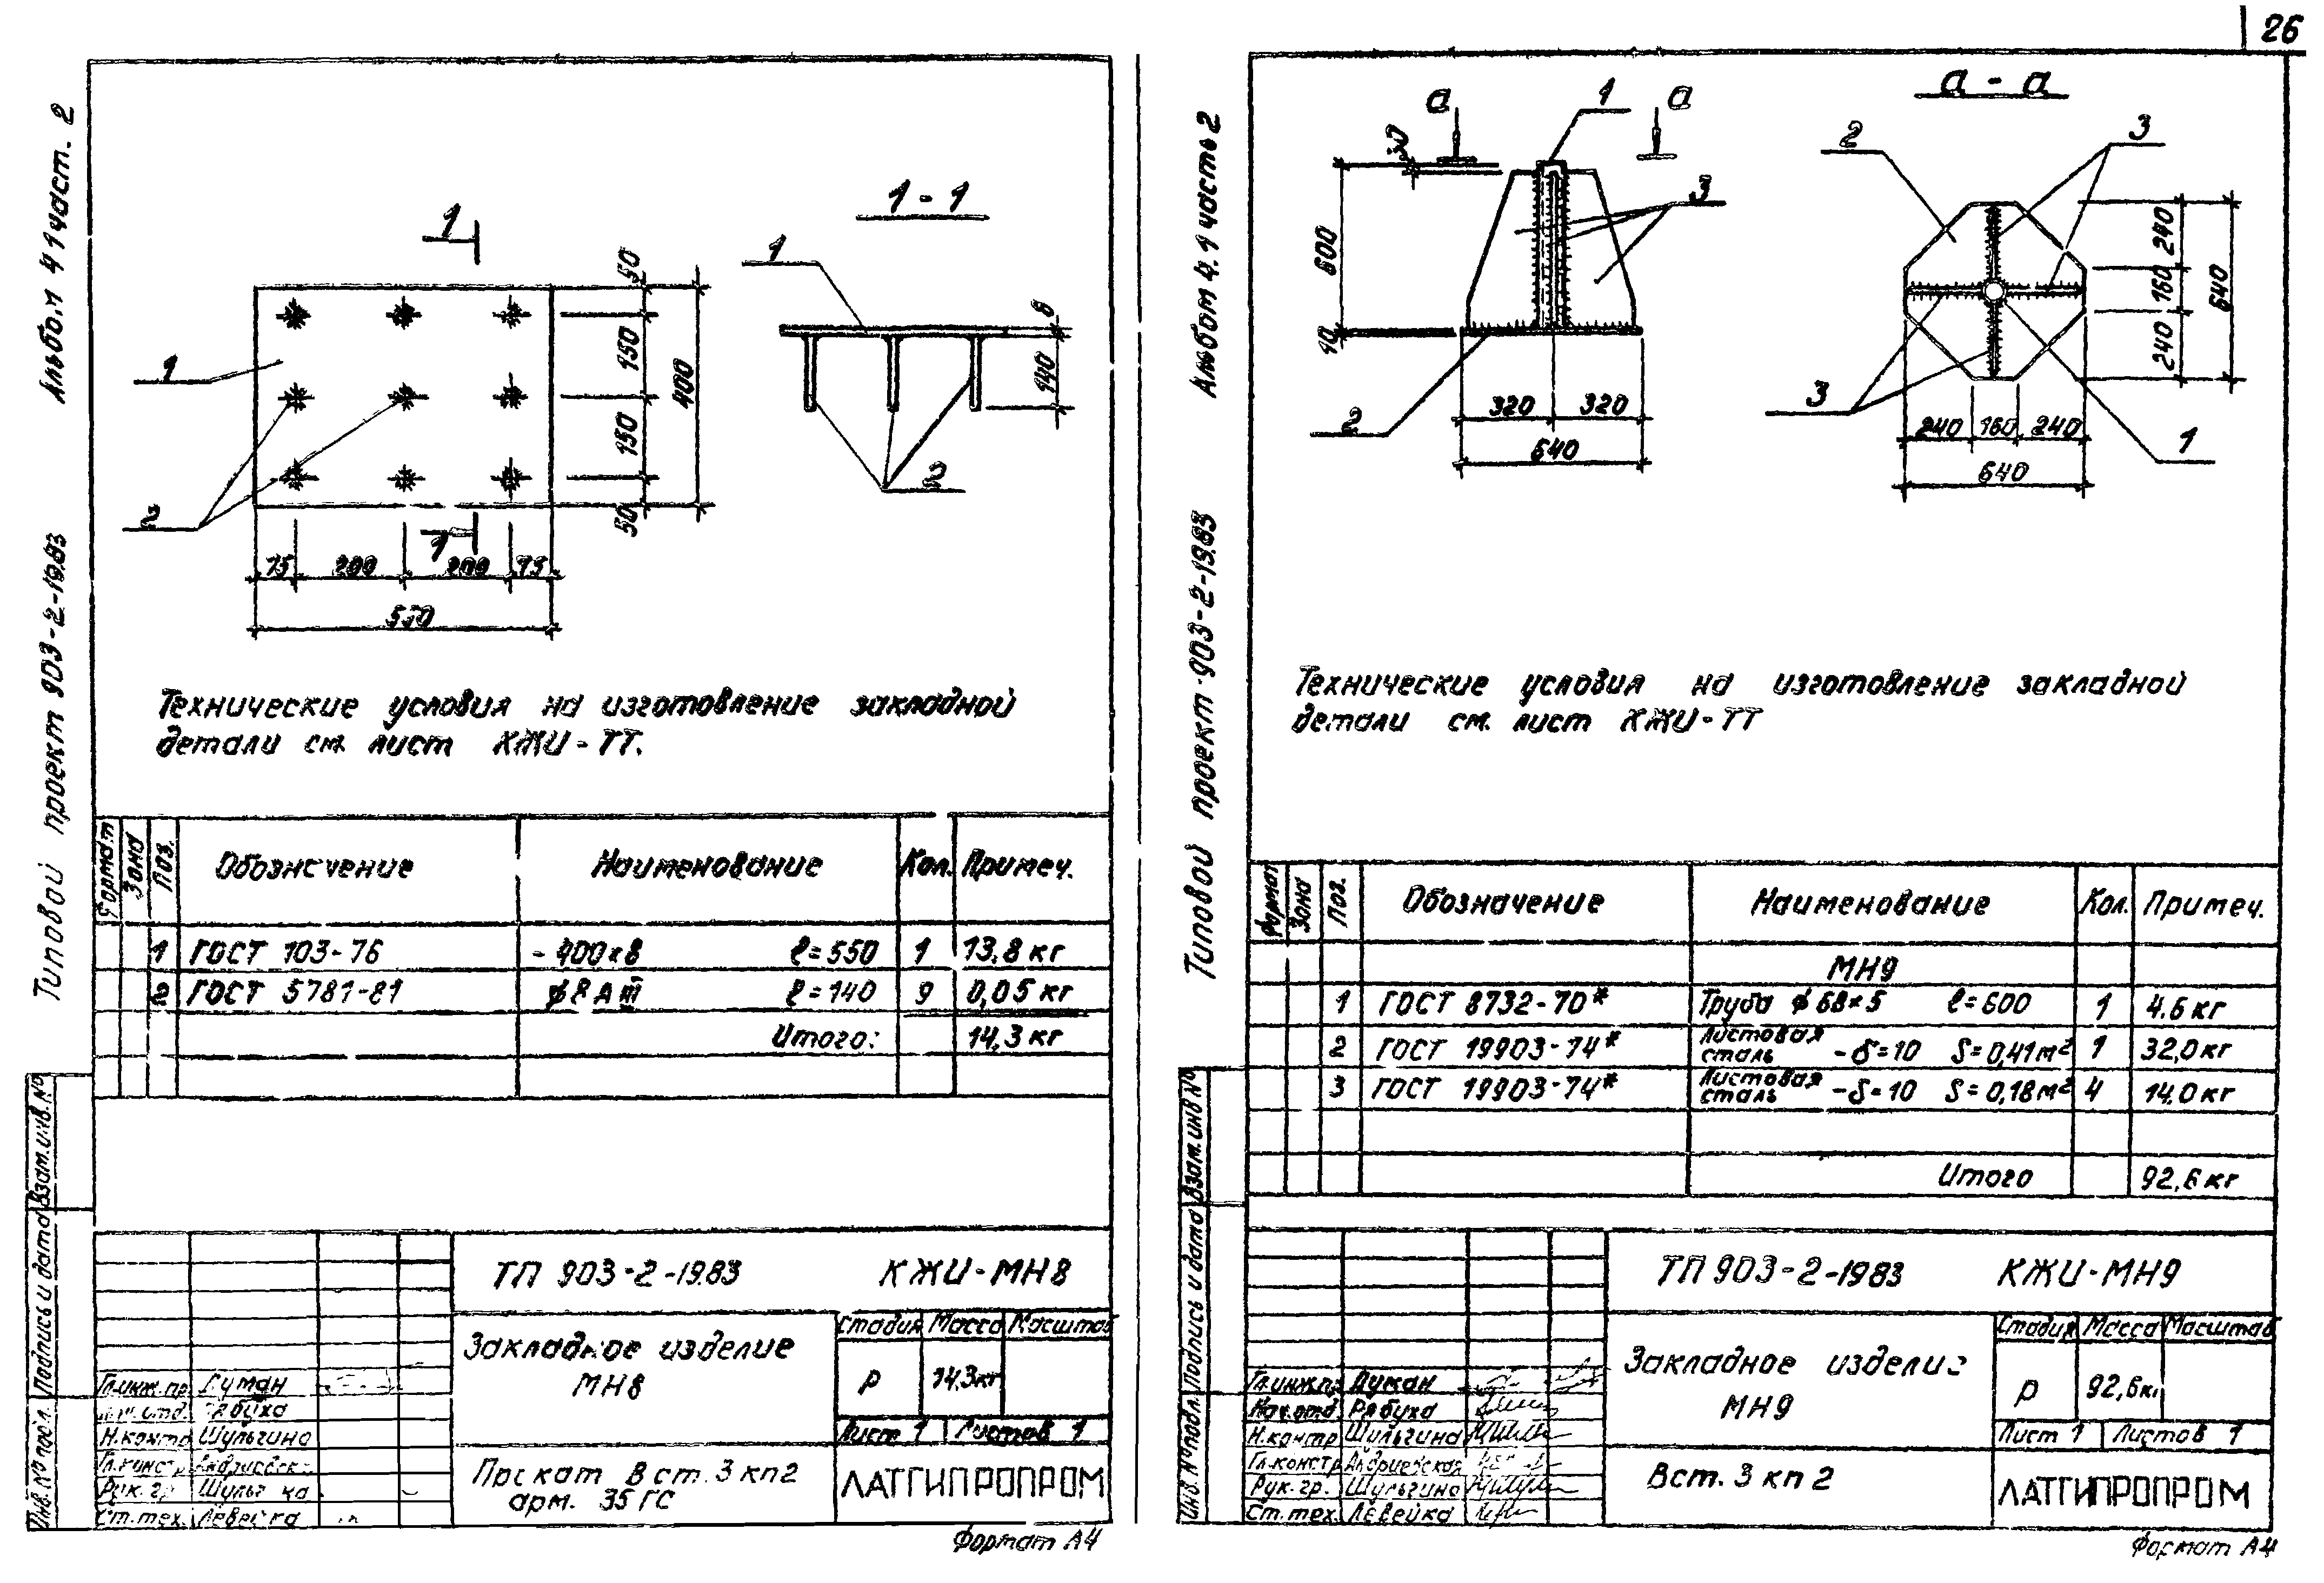 26
Альбом 4.1 част. 2
Типовой проект 903-2-19.83
1
1
1 - 1
1
1
2
2
50
150
150
50
400
75
200
200
75
550
8
140
Технические условия на изготовление закладной
детали см. лист КЖИ-ТТ.
Формат Зона Поз. Обозначение Наименование Кол. Примеч.
1 ГОСТ 103-76 - 400х8 ℓ=550 1 13,8 кг
2 ГОСТ 5781-81 ϕ8АIII ℓ=140 9 0,05 кг
Итого: 14,3 кг
ТП 903-2-19.83 КЖИ-МН8
Закладное изделие
МН8
Стадия Масса Масштаб
р 14,3кг
Лист 1 Листов 1
Гл.инж.пр. Думан
Рябуха
Н.контр Шульгина
Гл.констр
Рук.гр Шульгина
Ст.тех. Левейка
Прокат Вст.3кп2
арм. 35ГС
ЛАТГИПРОПРОМ
Формат А4
Инв.№подл. Подпись и дата Взам.инв.№
Альбом 4.1 часть 2
Типовой проект 903-2-19.83
а
а
1
а - а
30
600
10
3
2
320
320
640
2
3
3
1
240
160
240
640
240
160
240
640
Технические условия на изготовление закладной
детали см. лист КЖИ-ТТ
Формат Зона Поз. Обозначение Наименование Кол. Примеч.
МН9
1 ГОСТ 8732-70* Труба ϕ68х5 ℓ=600 1 4.6 кг
2 ГОСТ 19903-74* Листовая сталь -δ=10 S=0,41м² 1 32,0кг
3 ГОСТ 19903-74* Листовая сталь -δ=10 S=0,18м² 4 14.0кг
Итого 92,6кг
ТП 903-2-1983 КЖИ-МН9
Закладное изделие
МН9
Стадия Масса Масштаб
р 92,6кг
Лист 1 Листов 1
Гл.инж.пр Думан
Нач.отд. Рябуха
Н.контр Шульгина
Гл.констр Андриевская
Рук.гр. Шульгина
Ст.тех. Левейка
Вст.3кп2
ЛАТГИПРОПРОМ
Формат А4
Инв.№подл. Подпись и дата Взам.инв№